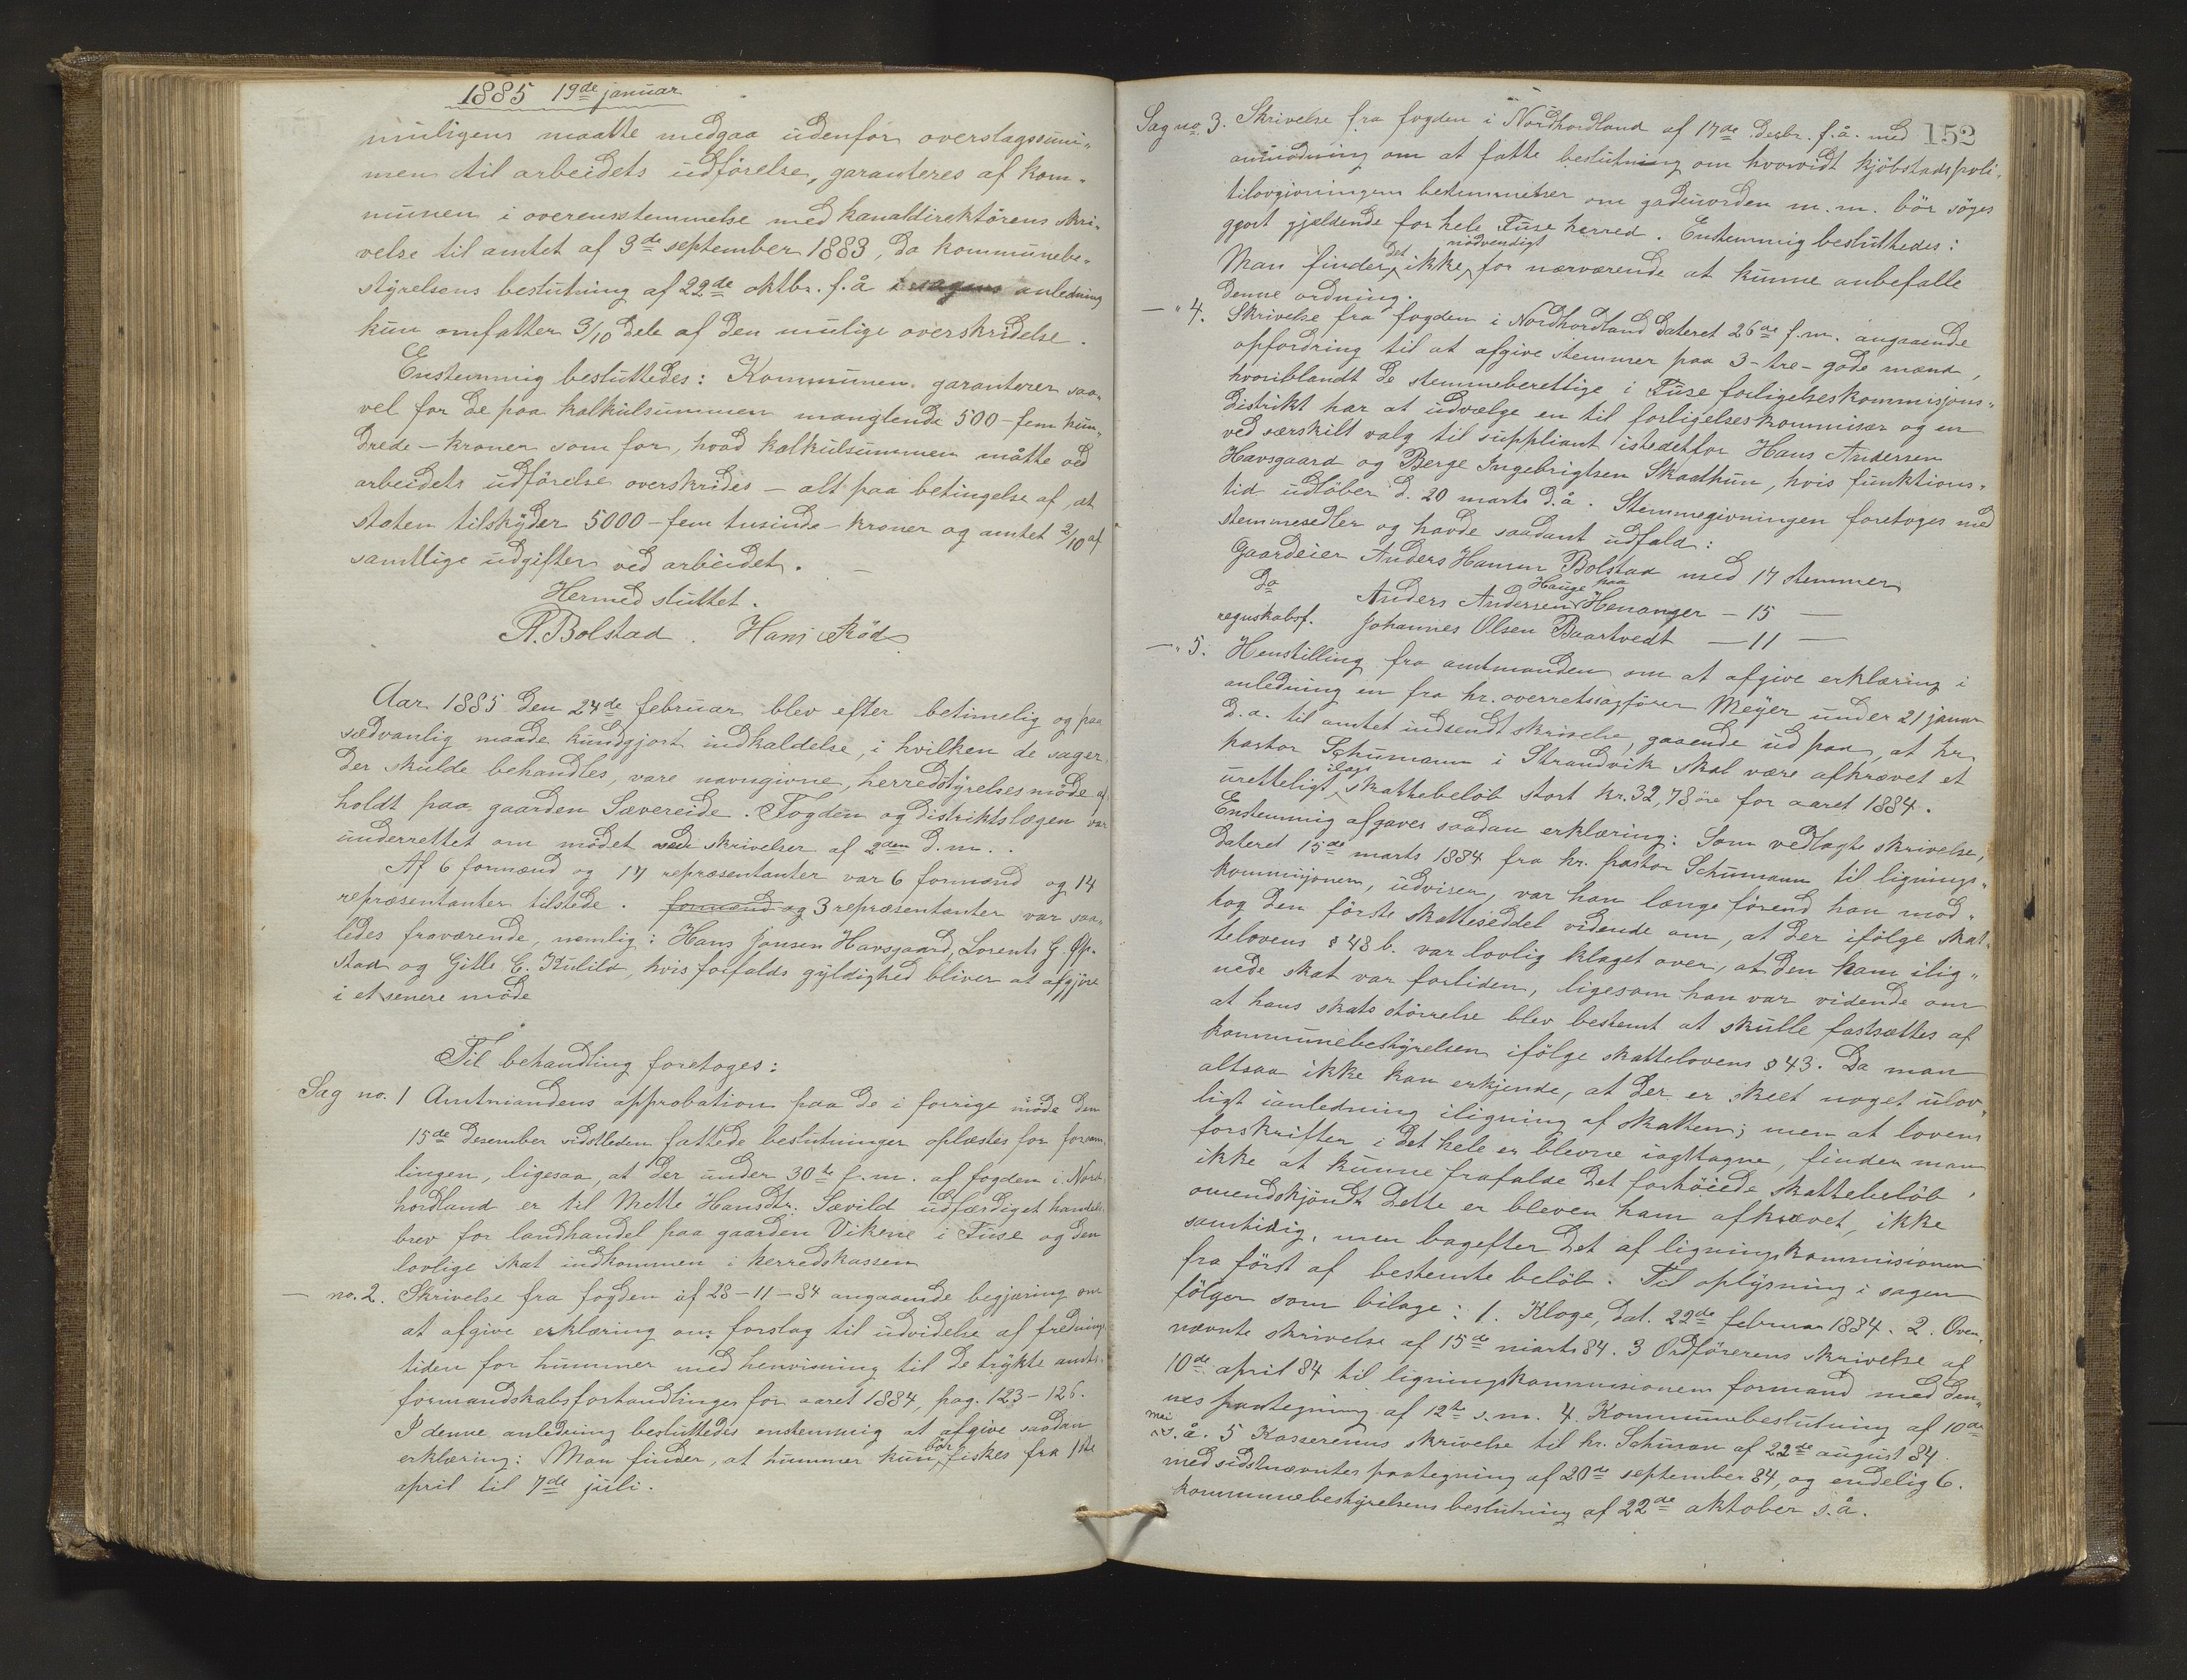 1885 19de januar
muligens maatte medgaa udenfor overslagssum„
men til arbeidets udförelse, garanteres af kom„
munen i overensstemmelse med kanaldirektörens skri„
velse til amtet af 3de september 1883, da kommunebe„
styrelsens beslutning af 22de oktbr. f.å i sagens anledning
kun omfatter 3/10 dele af den mulige overskridelse.
Enstemmig besluttedes: Kommunen garanterer saa„
vel for de paa kalkulsummen manglende 500 - fem hun„
drede - kroner som for, hvad kalkulsummen måtte ved
arbeidets udförelse overskrides - alt paa betingelse af, at
staten tilskyder 5000 - fem tusinde - kroner og amtet 3/10 af
samtlige udgifter ved arbeidet.
Hermed sluttet.
A. Bolstad. Hans Röd
Aar 1885 den 24de februar blev efter betimelig og paa
sedvanlig maade kundgjort indkaldelse, i hvilken de sager,
der skulde behandles, vare navngivne, herredsstyrelsesmöde af„
holdt paa gaarden Sævereide. Fogden og distriktslægen var
underrettet om mödet ved skrivelser af 2den d.m.
Af 6 formænd og 17 repræsentanter var 6 formænd og 14
repræsentanter tilstede. formænd og 3 repræsentanter var saa„
ledes fraværende, nemlig: Hans Jansen Havsgaard, Lorents G. Øp„
stad og Gitle C. Kulild, hvis forfalds gyldighed bliver at afgjöre
i et senere möde
Til behandling foretoges:
Sag no. 1 Amtmandens approbation paa de i forrige möde den
15de desember sidstleden fattede beslutninger oplæstes for forsam„
lingen, ligesaa, at der under 30te f.m. af fogden i Nord„
hordland er til Mette Hansdtr. Sævild udfærdiget handels„
brev for landhandel paa gaarden Vikene i Fuse og den
lovlige skat indkommen i herredskassen
— no. 2. Skrivelse fra fogden af 28-11-84 angaaende begjæring om
at afgive erklæring om forslag til udvidelse af frednings„
tiden for hummer med henvisning til de trykte amts„
formandskabsforhandlinger for aaret 1884, pag. 123-126.
I denne anledning besluttedes enstemmig at afgive saadan
erklæring: Man finder, at hummer kun bör fiskes fra 1ste
april til 7de juli.
152
Sag no. 3. Skrivelse fra fogden i Nordhordland af 17de desbr. f.å. med
anmodning om at fatte beslutning om hvorvidt kjöbstadspoli„
tilovgivningens bestemmelser om gadeuorden m.m. bör söges
gjort gjældende for hele Fuse herred. Enstemmig besluttedes:
Man finder det ikke nödvendigt for nærværende at kunne anbefalle
denne ordning.
— „ 4. Skrivelse fra fogden i Nordhordland dateret 26de f.m. angaaende
opfordring til at afgive stemmer paa 3 - tre - gode mænd,
hvoriblandt de stemmeberettige i Fuse forligelseskommisjons„
distrikt har at udvælge en til forligelseskommisær og en
ved særskilt valg til suppliant istedetfor Hans Andersen
Havsgaard og Berge Ingebrigtsen Skaathun, hvis funktions„
tid udlöber d. 20 marts d.å. Stemmegivningen foretoges med
stemmesedler og havde saadant udfald:
Gaardeier Anders Hansen Bolstad med 17 stemmer
do Anders Andersen Hauge paa Henanger - 15 —
regnskabsf. Johannes Olsen Baartvedt - 11 —
— „ 5. Henstilling fra amtmanden om at afgive erklæring i
anledning en fra hr. overretssagförer Meyer under 21 januar
d.a. til amtet indsendt skrivelse, gaaende ud paa, at hr.
pastor Schumann i Strandvik skal være afkrævet et
uretteligt ilagt skattebelöb stort kr. 32,78 öre for aaret 1884.
Enstemmig afgaves saadan erklæring: Som vedlagte skrivelse,
dateret 15de marts 1884 fra hr. pastor Schumann til lignings„
kommisjonen, udviser, var han længe förend han mod„
tog den förste skatteseddel vidende om, at der ifölge skat„
telovens § 48 b. var lovlig klaget over, at den ham ilig„
nede skat var forliden, ligesom han var vidende om
at hans skats störrelse blev bestemt at skulle fastsættes af
kommunebestyrelsen ifölge skattelovens § 43. Da man
altsaa ikke kan erkjende, at der er skeet noget ulov„
ligt i anledning iligning af skatten; men at lovens
forskrifter i det hele er blevne iagttagne, finder man
ikke at kunne frafalde det forhöiede skattebelöb,
omendskjöndt dette er bleven ham afkrævet, ikke
samtidig, men bagefter det af ligningskommisionen
fra först af bestemte belöb. Til oplysning i sagen
fölger som bilage: 1. Klage, dat. 22de februar 1884. 2. Oven„
nævnte skrivelse af 15de marts 84. 3 Ordförerens skrivelse af
10de april 84 til ligningskommisionens formand med den„
nes paategning af 12te s.m. 4. Kommunebeslutning af 10de
mai s.å. 5 Kassererens skrivelse til hr. Schuman af 22de august 84
med sidstnævntes paategning af 20de september 84, og endelig 6.
kommunebestyrelsens beslutning af 22de oktober s.å.